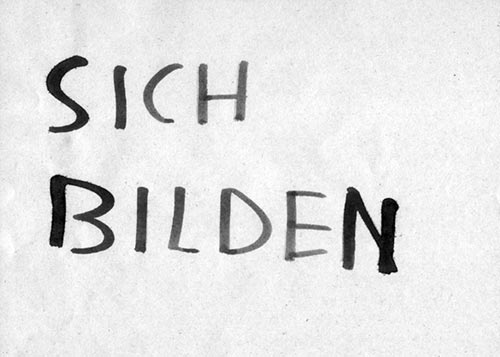 SICH
BILDEN